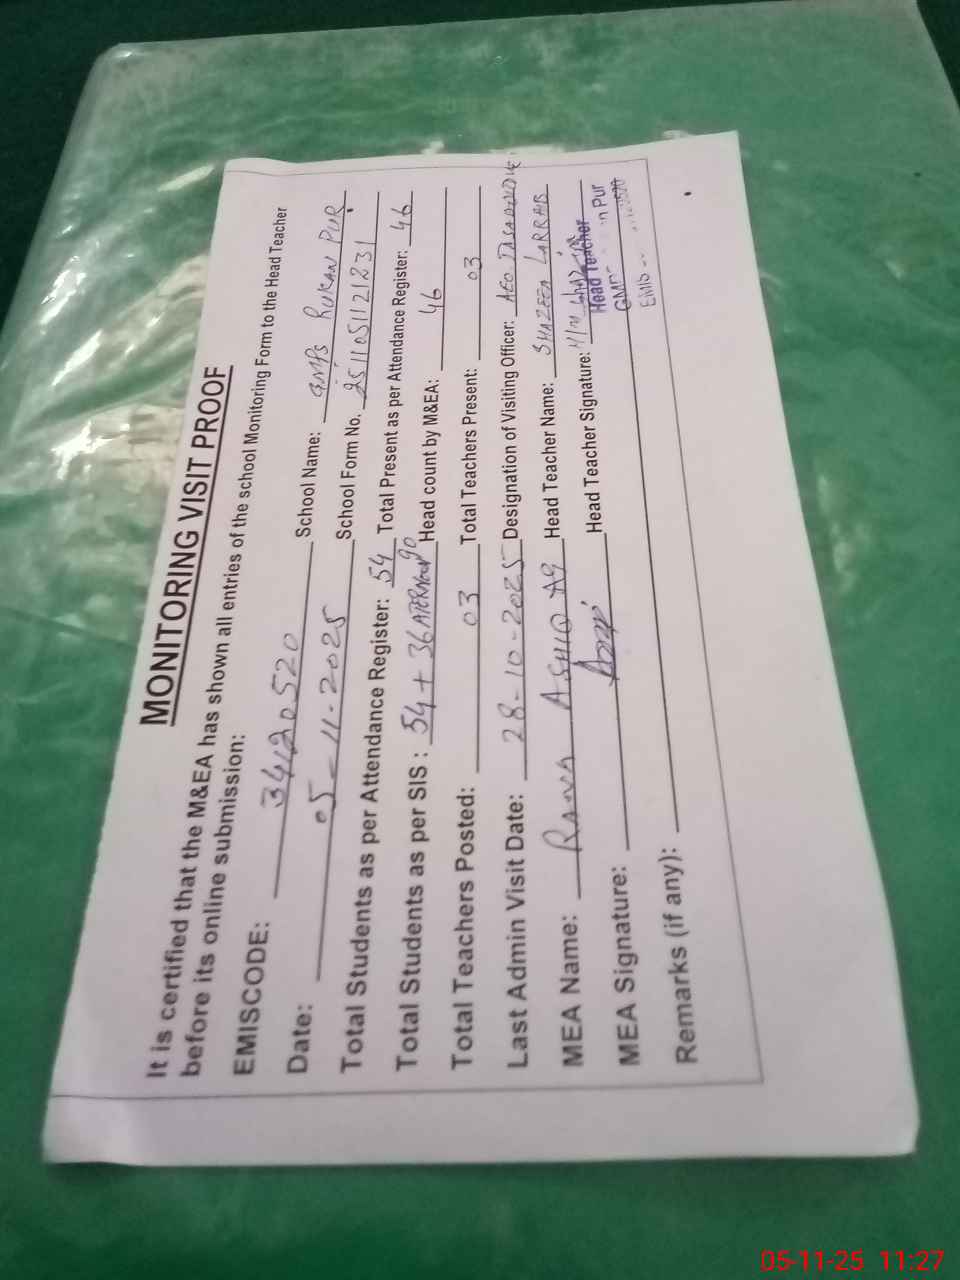 MONITORING VISIT PROOF
It is certified that the M&EA has shown all entries of the school Monitoring Form to the Head Teacher
before its online submission:
EMISCODE: 34120520 School Name: GMPS RUKAN PUR
Date: 05-11-2025 School Form No. 2511051121231
Total Students as per Attendance Register: 54 Total Present as per Attendance Register: 46
Total Students as per SIS : 54 + 36 AFTERNOON 90 Head count by M&EA: 46
Total Teachers Posted: 03 Total Teachers Present: 03
Last Admin Visit Date: 28-10-2025 Designation of Visiting Officer: AEO
MEA Name: RANA ASHIQ A9 Head Teacher Name: SHAZEEA
MEA Signature: Head Teacher Signature:
Head Teacher
Pur
Remarks (if any):
05-11-25 11:27